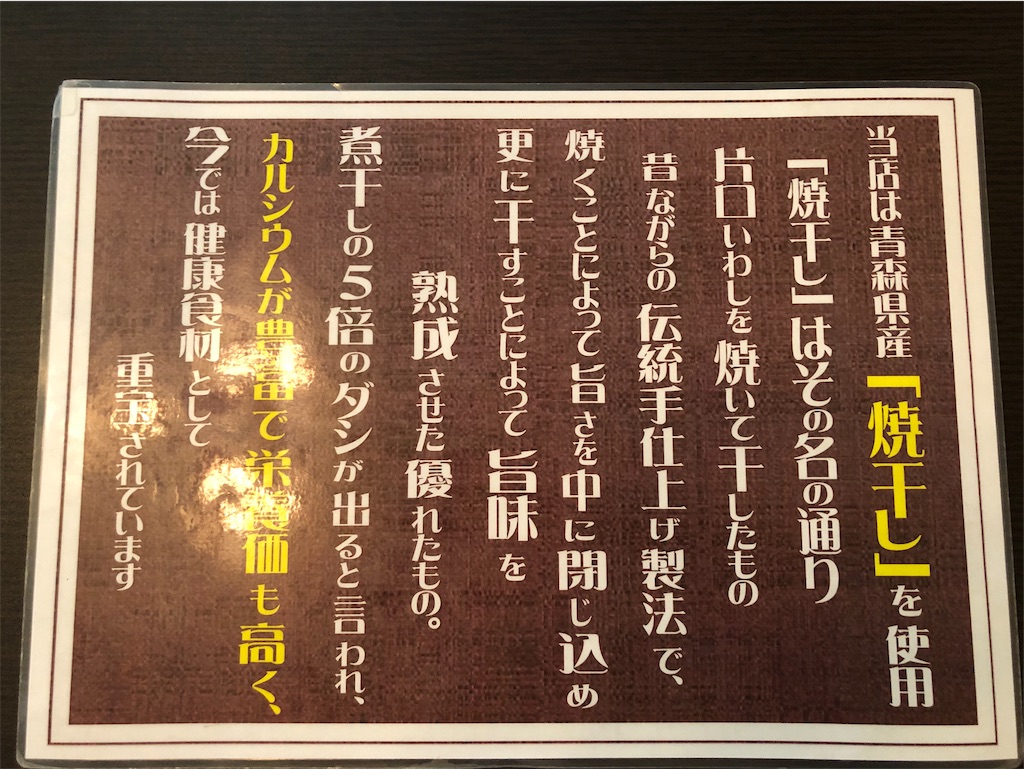 当店は青森県産「焼干し」を使用
「焼干し」はその名の通り
片口いわしを焼いて干したもの
昔ながらの伝統手仕上げ製法で、
焼くことによって旨さを中に閉じ込め
更に干すことによって旨味を
熟成させた優れたもの。
煮干しの5倍のダシが出ると言われ、
カルシウムが豊富で栄養価も高く、
今では健康食材として
重宝されています